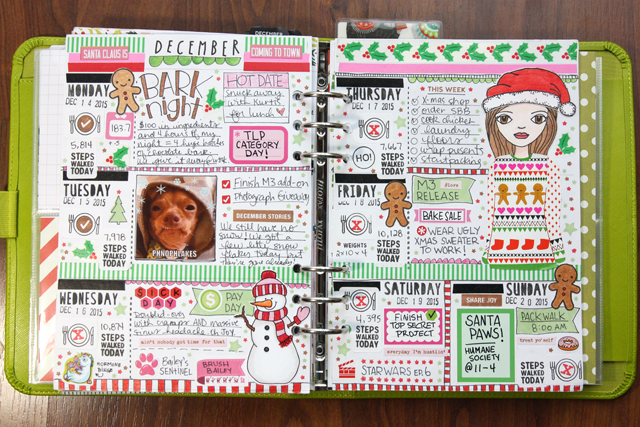 SANTA CLAUS IS
DECEMBER
COMING TO TOWN
MONDAY
DEC 14 2015
183.7
5,814
STEPS
WALKED
TODAY
BARK
night
$100 in ingredients
and 4 hours of my
night = 4 huge
of chocolate bark.
HOT DATE
snuck away
with Kurtis
for lunch
TLP
CATEGORY
DAY!
TUESDAY
DEC 15 2015
7,978
STEPS
WALKED
TODAY
PHNOPHLAKES
Finish M3 add-on
Photograph Giveaway
DECEMBER STORIES
We still have no
snow! We got a
few little snow
flakes today, but
WEDNESDAY
DEC 16 2015
10,874
STEPS
WALKED
TODAY
SICK
DAY
Doubled-over
with cramps AND massive
sinus headache. Oh Joy.
ain't nobody got time for that!
PAY
DAY
Bailey's
SENTINEL
BRUSH
BAILEY
THURSDAY
DEC 17 2015
7,667
HO!
STEPS
WALKED
TODAY
THIS WEEK
x-mas shop
order SBB
cook chicken
laundry
floors
wrap presents
FRIDAY
DEC 18 2015
10,128
WEIGHTS
2x10x4
STEPS
WALKED
TODAY
M3
Store
RELEASE
BAKE SALE
WEAR UGLY
XMAS SWEATER
TO WORK!
SATURDAY
DEC 19 2015
4,395
STEPS
WALKED
TODAY
FINISH
TOP SECRET
PROJECT
everyday I'm hustlin'
STAR WARS EP. 6
SHARE JOY
SANTA
PAWS!
HUMANE
SOCIETY
@11-4
SUNDAY
DEC 20 2015
PACK WALK
8:00 AM
treat yo'self
STEPS
WALKED
TODAY